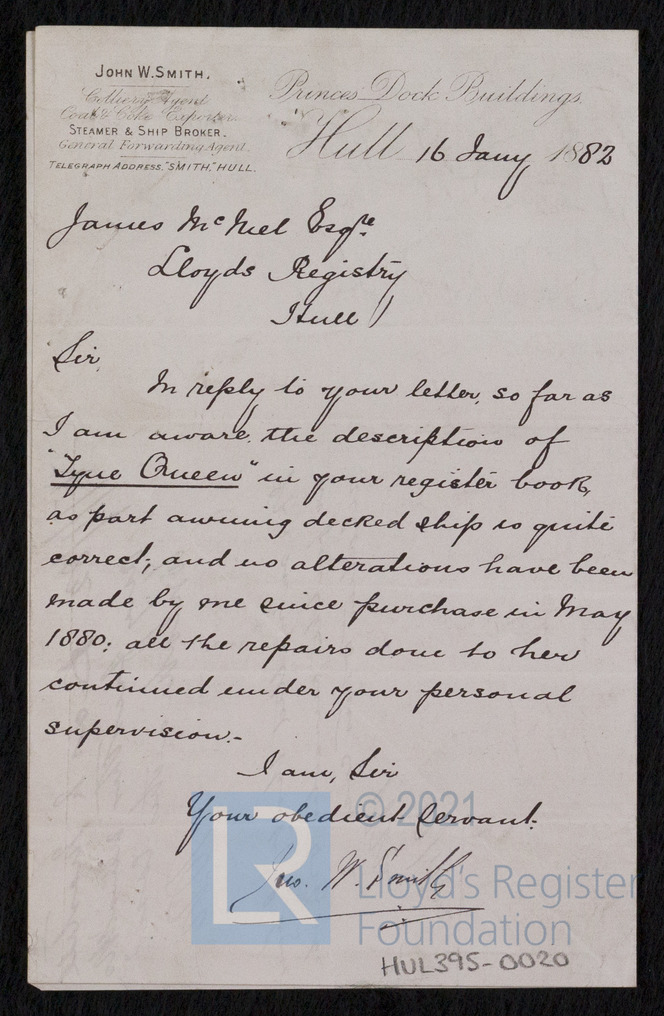 JOHN W. SMITH,
Colliery Agent
Coal & Coke Exporter.
STEAMER & SHIP BROKER.
General Forwarding Agent.
TELEGRAPH ADDRESS. "SMITH," HULL.
Princes Dock Buildings,
Hull 16 Jany 1882
James McNiel Esqre
Lloyds Registry
Hull
Sir,
In reply to your letter, so far as
I am aware, the description of
"Tyne Queen" in your register book,
as part awning decked ship is quite
correct, and no alterations have been
made by me since purchase in May
1880; all the repairs done to her
continued under your personal
supervision.-
I am, Sir
Your obedient servant.
Jno. W. Smith
LR
© 2021
Lloyd's Register
Foundation
HUL395-0020